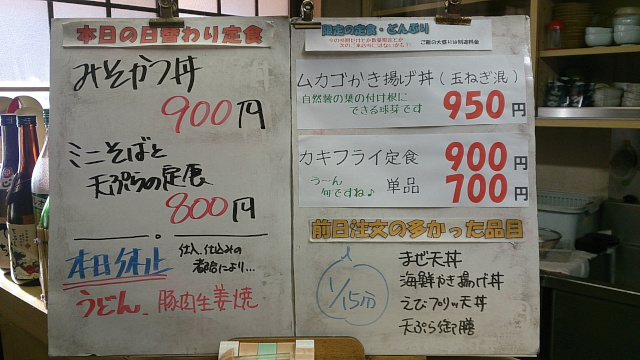 本日の日替わり定食
みそかつ丼
900円
ミニそばと
天ぷらの定食
800円
本日休止
仕入、仕込みの
都合により…
うどん、豚肉生姜焼
限定の定食・どんぶり
ご飯の大盛りは別途料金
ムカゴかき揚げ丼(玉ねぎ混)
自然薯の葉の付け根に
できる球芽です
950円
カキフライ定食 900円
うーん
旬ですね♪
単品 700円
前日注文の多かった品目
1/15分
まぜ天丼
海鮮かき揚げ丼
えびプリッ天丼
天ぷら御膳